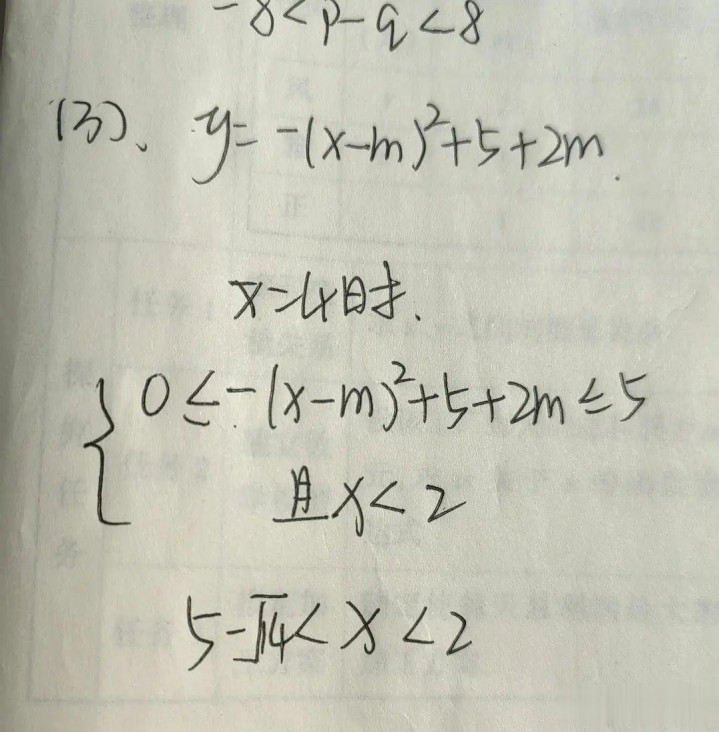 -8<p-q<8
(3)、y=-(x-m)²+5+2m.
x=4时.
{0≤-(x-m)²+5+2m≤5
且x<2
5-√14<x<2